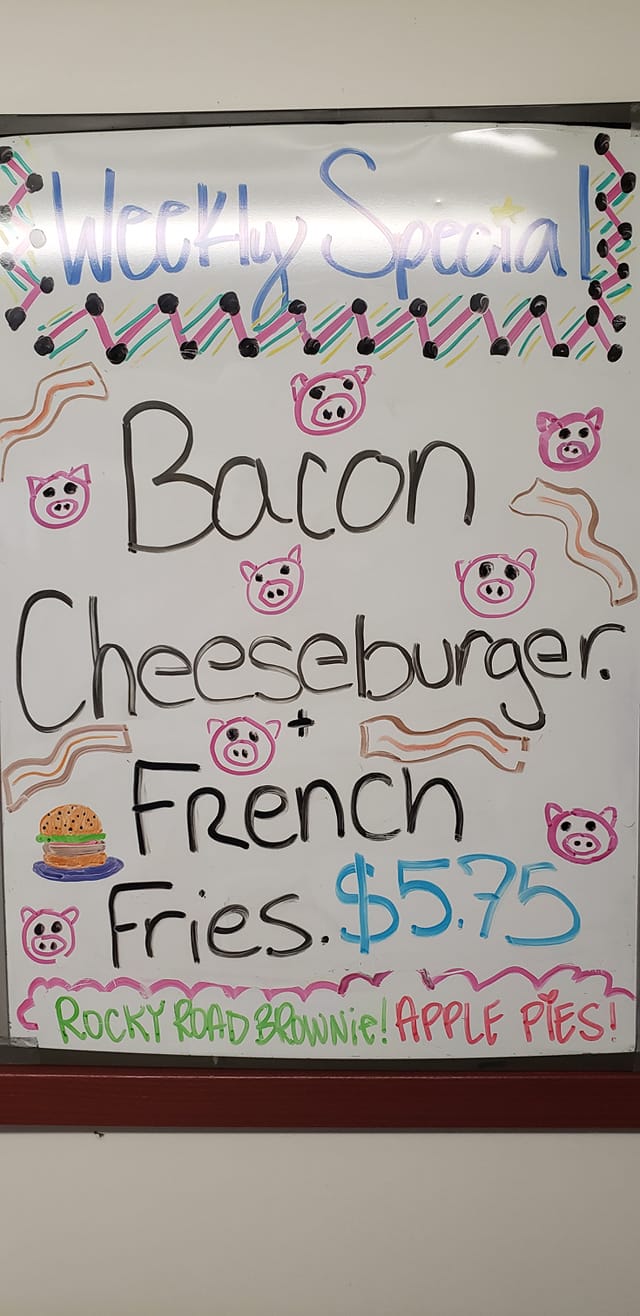 Weekly Special
Bacon
Cheeseburger.
+
French
Fries. $5.75
ROCKY ROAD BROWNie! APPLE PiES!